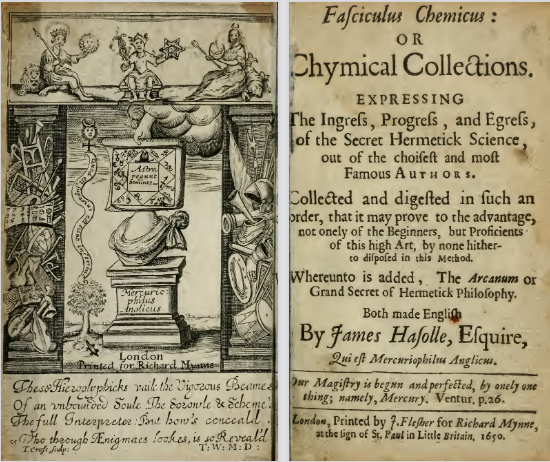 Astra
regunt
homines
Mercurio
philus
Anglicus
London
Printed for Richard Mynne
These Hieroglyphicks vaile the Vigorous Beames
Of an unbounded Soule. The Scrowle & Scheme
The full Interpreter: But how's conceald
Who through Ænigmaes lookes, is so Reveald
T. Cross sculp: T: W: M: D:
Fasciculus Chemicus:
OR
Chymical Collections.
EXPRESSING
The Ingress, Progress, and Egress,
of the Secret Hermetick Science,
out of the choisest and most
Famous AUTHORS.
Collected and digested in such an
order, that it may prove to the advantage,
not onely of the Beginners, but Proficients
of this high Art, by none hither-
to disposed in this Method.
Whereunto is added, The Arcanum or
Grand Secret of Hermetick Philosophy.
Both made English
By James Hasolle, Esquire,
Qui est Mercuriophilus Anglicus.
Our Magistry is begun and perfected, by onely one
thing; namely, Mercury. Ventur. p.26.
London, Printed by J. Flesher for Richard Mynne,
at the sign of St. Paul in Little Britain. 1650.